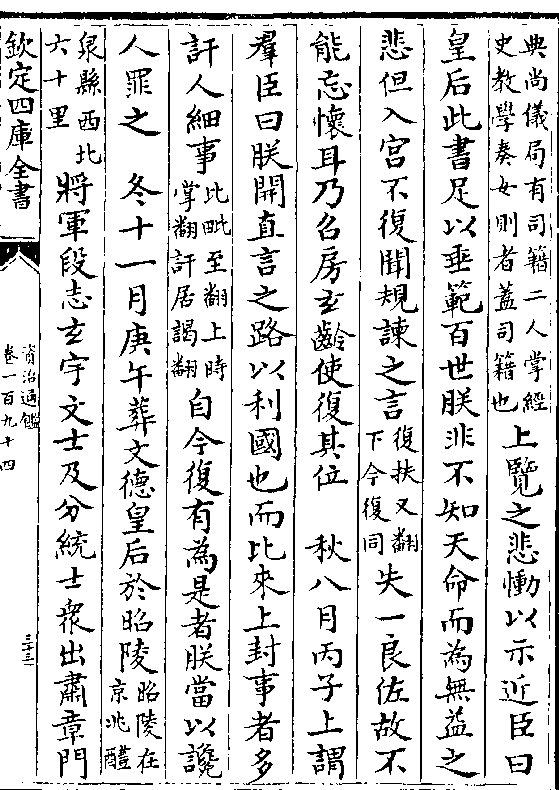 典尚儀局有司籍二人掌經
史教學奏女則者蓋司籍也
上覽之悲慟以示近臣曰
皇后此書足以垂範百世朕非不知天命而為無益之
悲但入宮不復聞規諫之言
復扶又翻
下今復同
失一良佐故不
能忘懷耳乃召房玄齡使復其位　秋八月丙子上謂
羣臣曰朕開直言之路以利國也而比來上封事者多
訐人細事
比毗至翻上時
掌翻訐居謁翻
自今復有為是者朕當以讒
人罪之　冬十一月庚午葬文德皇后於昭陵
昭陵在
京兆醴
泉縣西北
六十里
將軍段志玄宇文士及分統士衆出肅章門
欽定四庫全書
資治通鑑
卷一百九十四
三十三